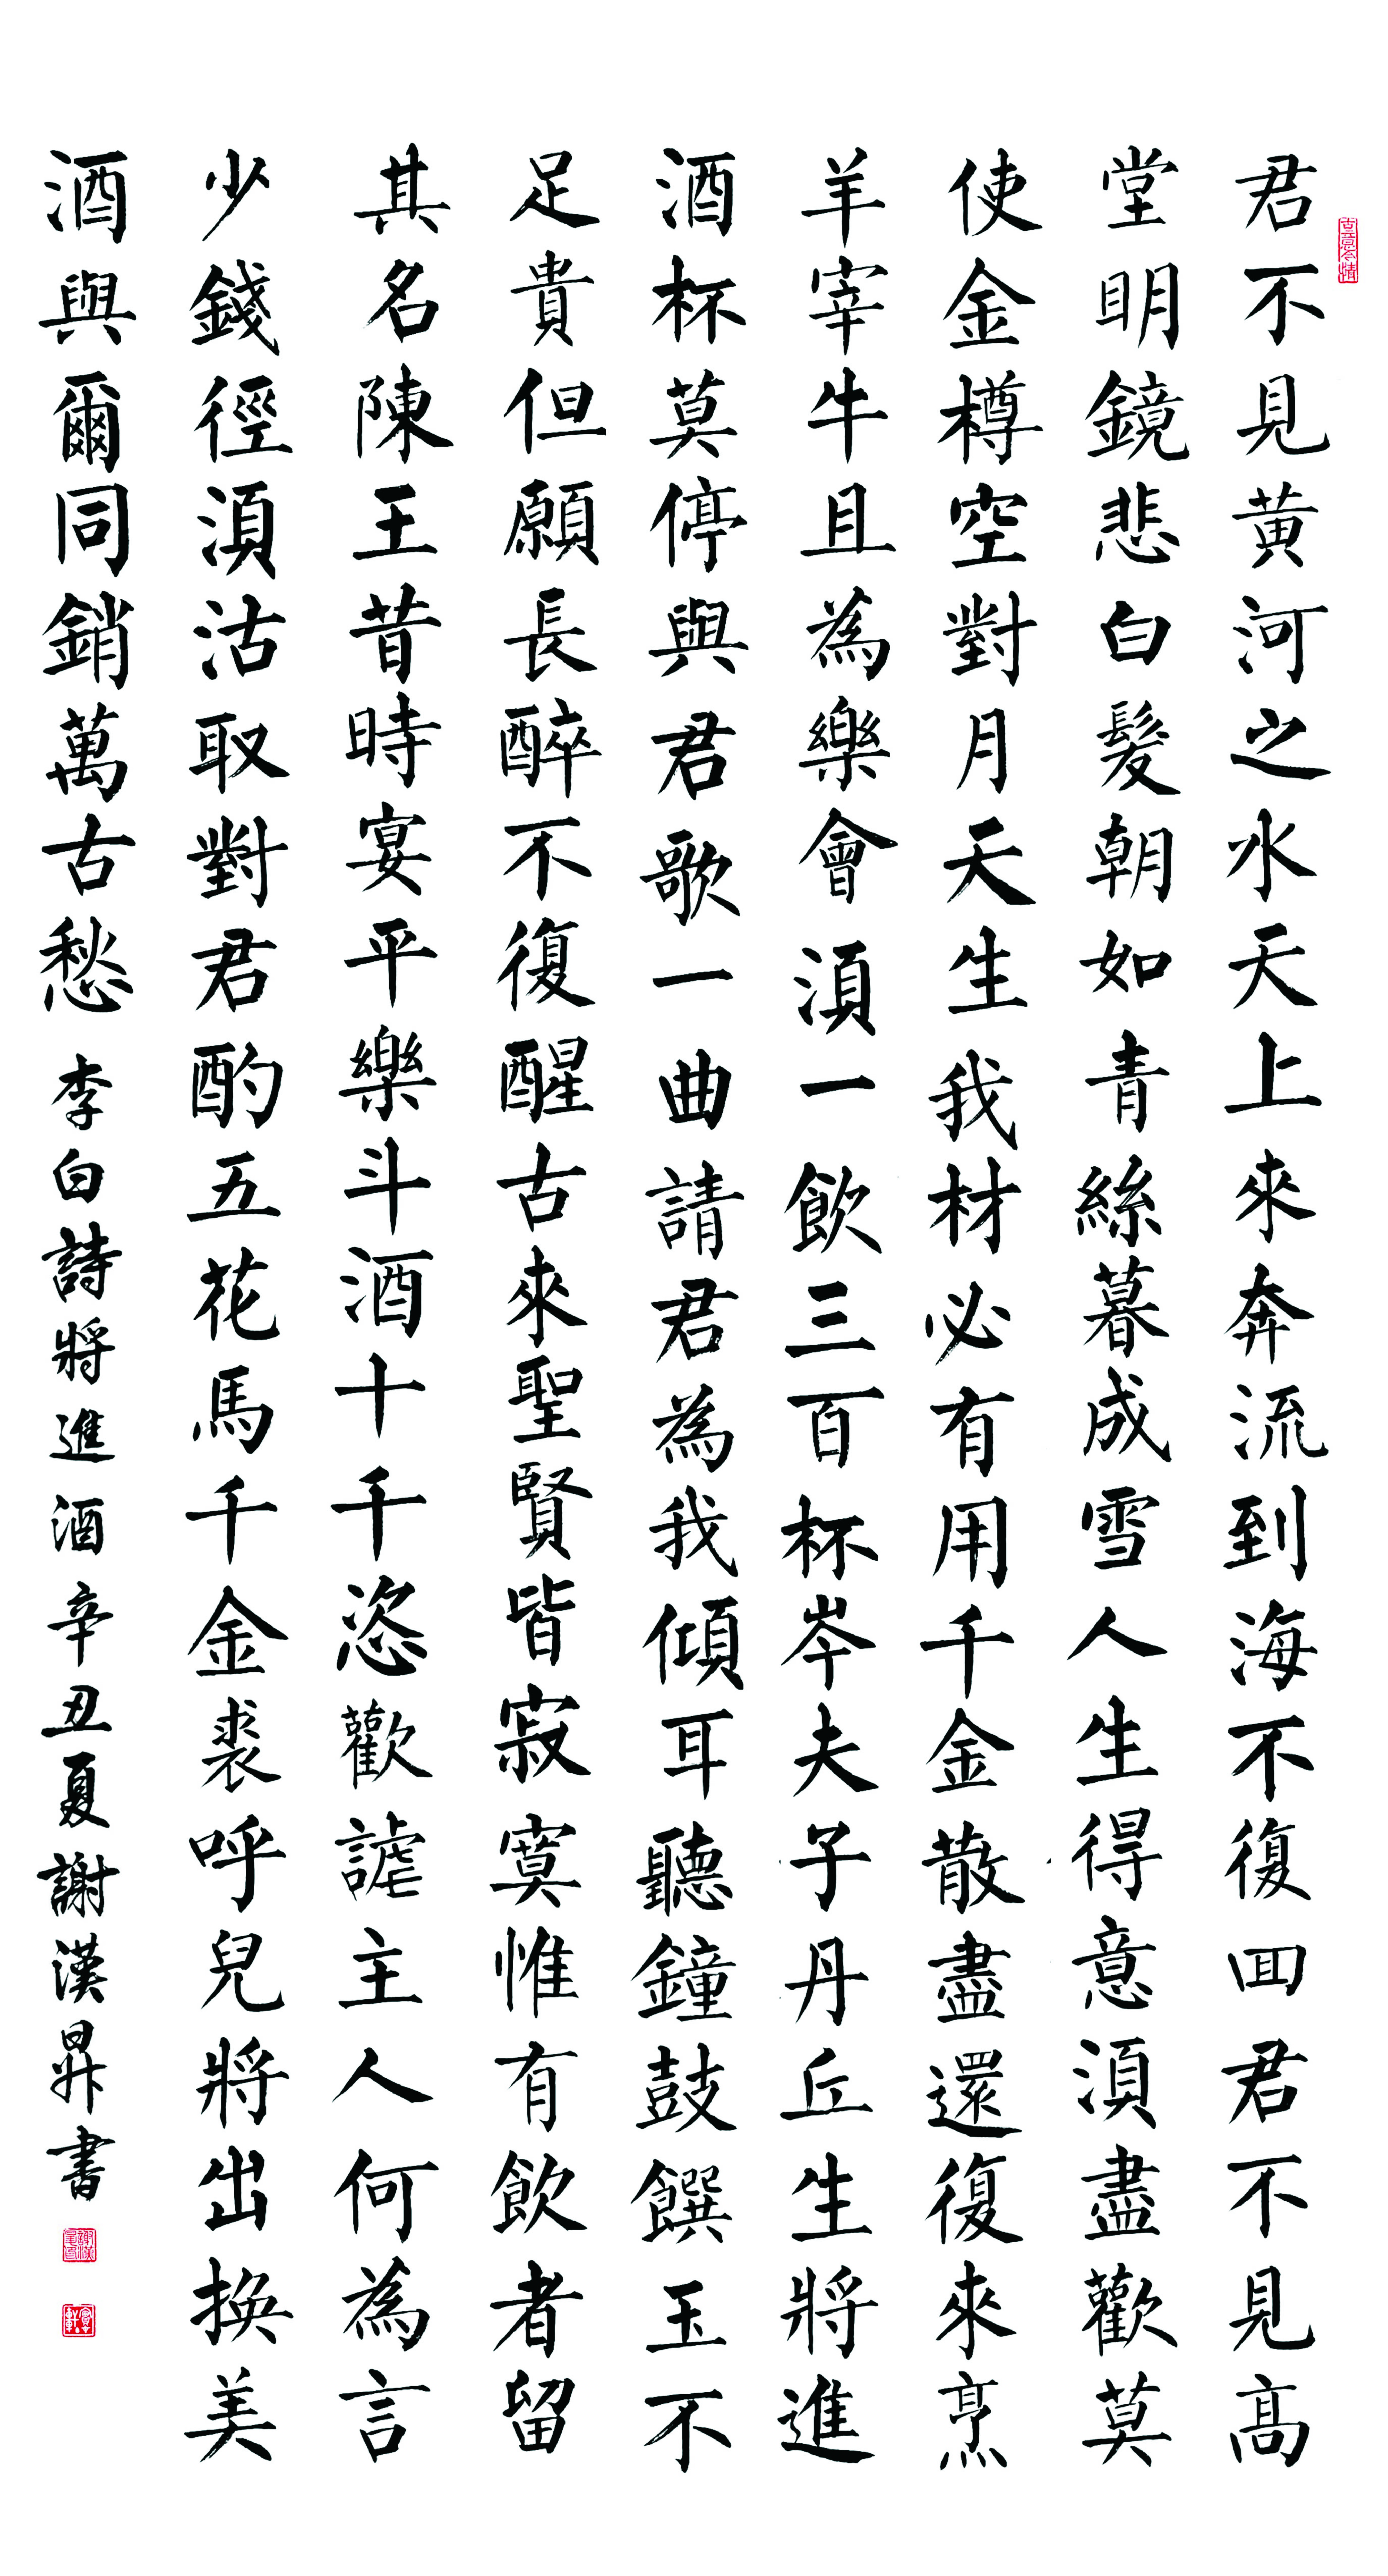 古意今情
君不見黃河之水天上來奔流到海不復回君不見高
堂明鏡悲白髮朝如青絲暮成雪人生得意須盡歡莫
使金樽空對月天生我材必有用千金散盡還復來烹
羊宰牛且為樂會須一飲三百杯岑夫子丹丘生將進
酒杯莫停與君歌一曲請君為我傾耳聽鐘鼓饌玉不
足貴但願長醉不復醒古來聖賢皆寂寞惟有飲者留
其名陳王昔時宴平樂斗酒十千恣歡謔主人何為言
少錢徑須沽取對君酌五花馬千金裘呼兒將出換美
酒與爾同銷萬古愁 李白詩將進酒 辛丑夏謝漢昇書